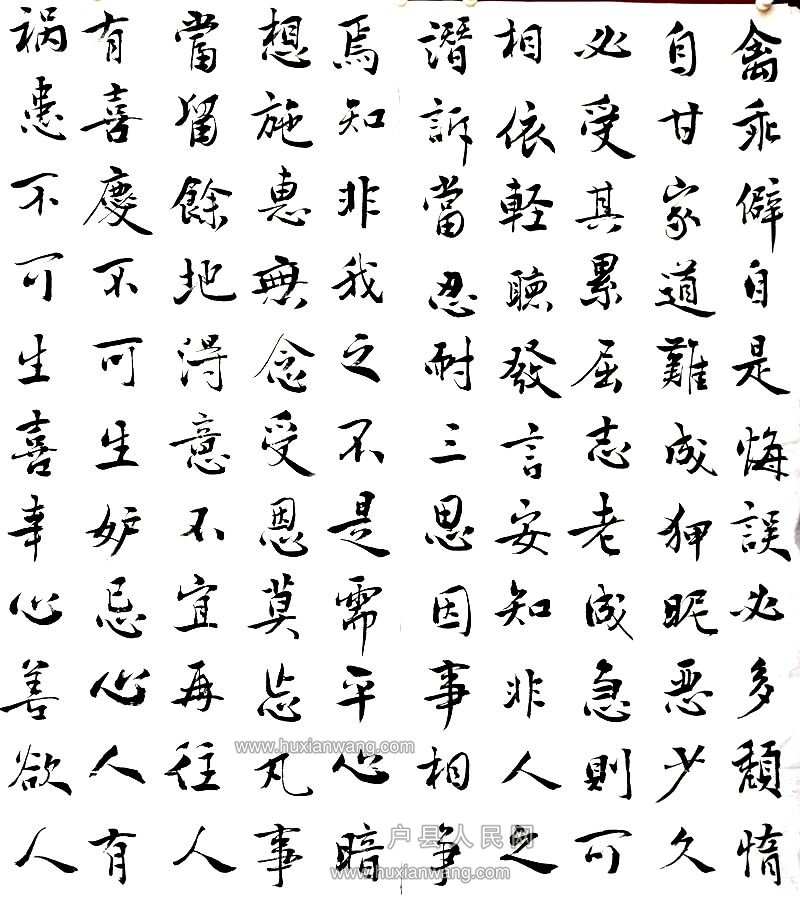 禽乖僻自是悔誤必多頹惰
自甘家道難成狎昵恶少久
必受其累屈志老成急則可
相依軽聴發言安知非人之
譖訴當忍耐三思因事相争
焉知非我之不是需平心暗
想施惠無念受恩莫忘凡事
當留餘地得意不宜再往人
有喜慶不可生妒忌心人有
祸患不可生喜幸心善欲人
www.huxianwang.com
户县人民网
www.huxianwang.com